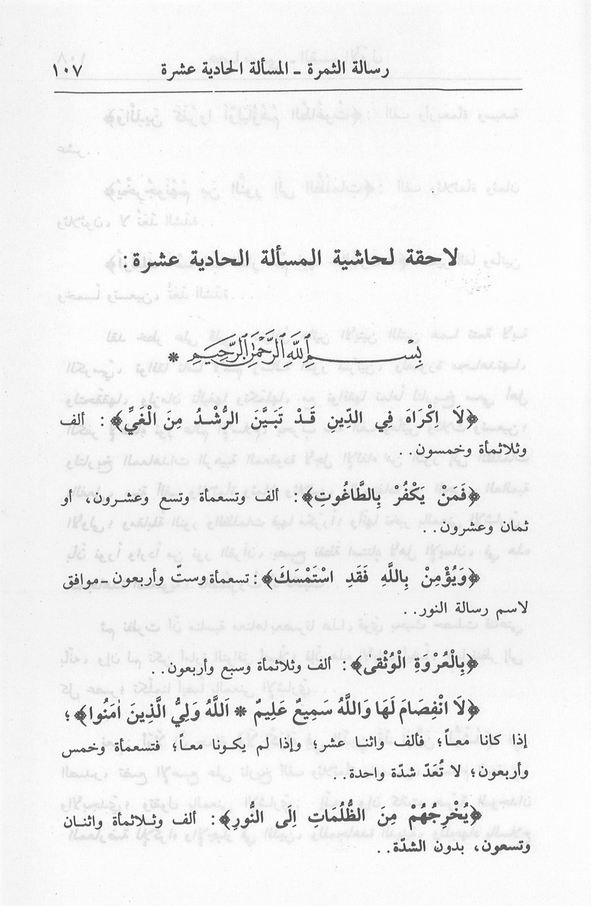 رسالة الثمرة - المسألة الحادية عشرة ١٠٧
لاحقة لحاشية المسألة الحادية عشرة:
بِسْمِ اللهِ الرَّحْمٰنِ الرَّحِيمِ *
﴿لَا اِكْرَاهَ فِي الدِّينِ قَدْ تَبَيَّنَ الرُّشْدُ مِنَ الْغَيِّ﴾: ألف
وثلاثمأة وخمسون..
﴿فَمَنْ يَكْفُرْ بِالطَّاغُوتِ﴾: ألف وتسعمأة وتسع وعشرون، أو
ثمان وعشرون..
﴿وَيُؤْمِنْ بِاللهِ فَقَدِ اسْتَمْسَكَ﴾: تسعمأة وستّ وأربعون -موافق
لاسم رسالة النور..
﴿بِالْعُرْوَةِ الْوُثْقىٰ﴾: ألف وثلاثمأة وسبع وأربعون..
﴿لَا انْفِصَامَ لَهَا وَاللهُ سَمِيعٌ عَلِيمٌ * اَللهُ وَلِيُّ الَّذِينَ اٰمَنُوا﴾؛
إذا كانا معاً؛ فألف واثنا عشر؛ وإذا لم يكونا معاً؛ فتسعمأة وخمس
وأربعون؛ لا تُعَدّ شدّة واحدة..
﴿يُخْرِجُهُمْ مِنَ الظُّلُمَاتِ اِلَى النُّورِ﴾: ألف وثلاثمأة واثنان
وتسعون، بدون الشدّة..